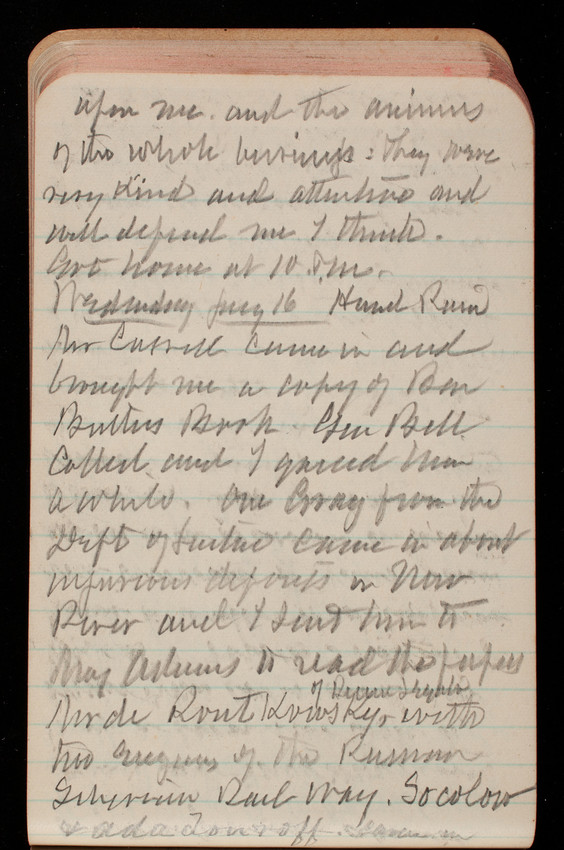 upon me. and the animus
of the whole business: They were
very kind and attentive and
will defend me I think.
Got home at 10 P.M.
Wednesday 16 Hard Rain
Mr came in and
brought me a copy of Ben
Butlers Book Gen Bell
Called and I him
a while. One from the
Dept of Justice came in about
injurious deposits in New
River and I sent him to
Maj Adams to read the papers
Mr de Routkowsky with
two of the Russian
Siberian Rail Way. Socolow